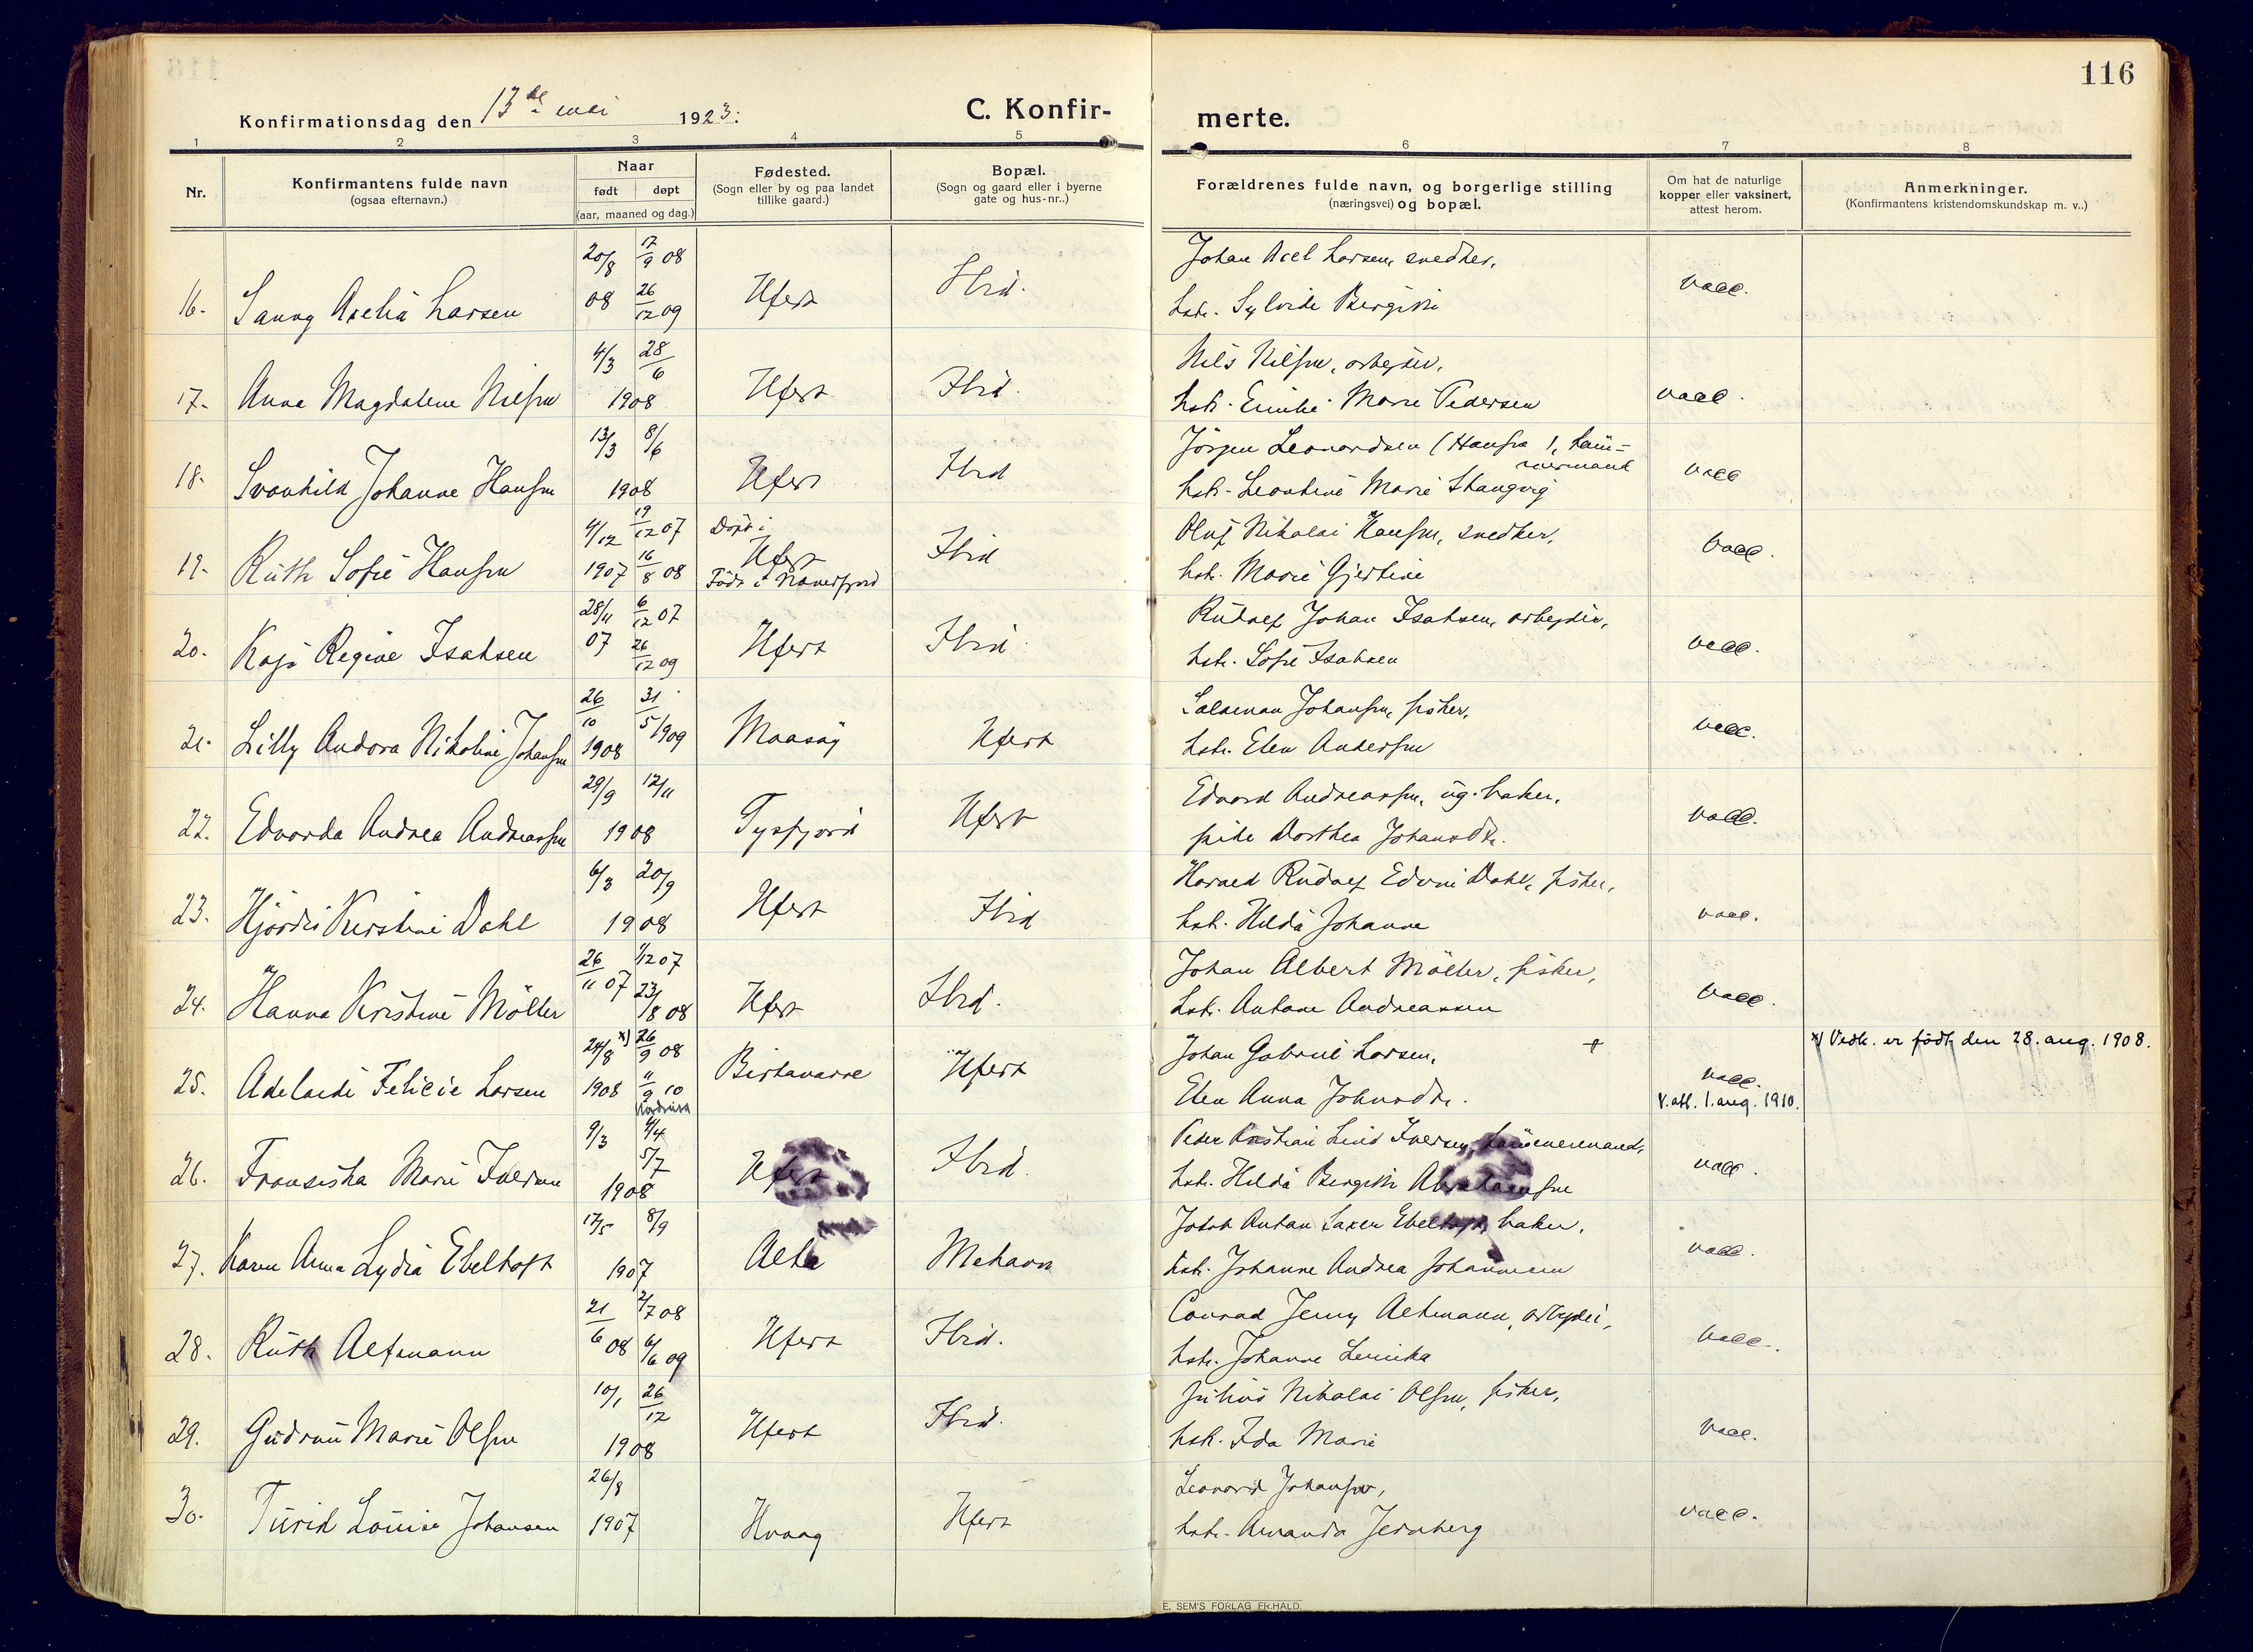 116
Konfirmationsdag den 13de mai 1923.
C. Konfir-
merte.
1 2 3 4 5 6 7 8
Nr.
Konfirmantens fulde navn
(ogsaa efternavn.)
Naar
født døpt
(aar, maaned og dag.)
Fødested.
(Sogn eller by og paa landet
tillike gaard.)
Bopæl.
(Sogn og gaard eller i byerne
gate og hus-nr..)
Forældrenes fulde navn, og borgerlige stilling
(næringsvei) og bopæl.
Om hat de naturlige
kopper eller vaksinert,
attest herom.
Anmerkninger.
(Konfirmantens kristendomskundskap m. v..)
20/8 17/9 08 Johan Axel Larsen, snedker,
16. Sanny Axelia Larsen 08 26/12 09 Hfest Ibid. vacc.
hstr. Sylvide Bergitte
4/3 28/6 Nils Nilsen, arbeider,
17. Anna Magdalene Nilsen 1908 Hfest Ibid. vacc.
hstr. Emilie Marie Pedersen
13/3 8/6 Jörgen Leonardsen (Hansen), tøm-
mermand
18. Svanhild Johanne Hansen 1908 Hfest Ibid vacc
hstr. Leontine Marie Stangvig
4/12 19/12 07 Døpt i Oluf Nikolai Hansen, snedker,
19. Ruth Sofie Hansen 1907 16/8 08 Hfest Ibid vacc.
Født i Kamerfjord hstr. Marie Gjertine
28/11 6/12 07 Rudolf Johan Isaksen, arbeider,
20. Kaja Regine Isaksen 07 26/12 09 Hfest Ibid vacc.
hstr. Sofie Isaksen
26/10 31/5 1909 Salamon Johansen, fisker,
21. Lilly Andora Nikoline Johansen 1908 Maasøy Hfest vacc.
hstr. Elen Andersen
29/9 12/11 Edvard Andreassen, ug. baker,
22. Edvarda Andrea Andreassen 1908 Tysfjord Hfest vacc.
pike Dorthea Johansdtr.
6/3 20/9 Harald Rudolf Edvin Dahl, fisker,
23. Hjördis Kirstine Dahl 1908 Hfest Ibid vacc.
hstr. Hilda Johanne
26/11 07 1/12 07 Johan Albert Möller, fisker,
24. Hanna Kristine Möller 23/8 08 Hfest Ibid. vacc.
hstr. Antone Andreassen
24/8 x) 26/9 08 Johan Gabriel Larsen, + x) Vedk. er født den 28. aug. 1908.
25. Adelaide Felicie Larsen 1908 11/9 10 Birtavarre Hfest vacc.
Elen Anna Johnsdtr. V. att. 1. aug. 1910.
9/3 4/4 5/7 Peder Kristian Lind Iversen, tømmermand,
26. Fransiska Marie Iversen 1908 Hfest Ibid. vacc.
hstr. Hilda Bergitte Abrahamsen
17/5 8/9 Jakob Anton Saxen Ebeltoft, baker,
27. Karen Anna Lydia Ebeltoft 1907 Alta Mehavn vacc.
hstr. Johanne Andrea Johannessen
21/6 08 2/7 08 Conrad Jenny Altmann, arbeider,
28. Ruth Altmann 6/6 09 Hfest Ibid. vacc.
hstr. Johanne Lemika
10/1 26/12 Julius Nikolai Olsen, fisker,
29. Gudrun Marie Olsen 1908 Hfest Ibid. vacc.
hstr. Ida Marie
26/8 Leonard Johansen,
30. Turid Louise Johansen 1907 Hvaag Hfest vacc.
hstr. Amanda Jernberg
E. SEM'S FORLAG FR.HALD.